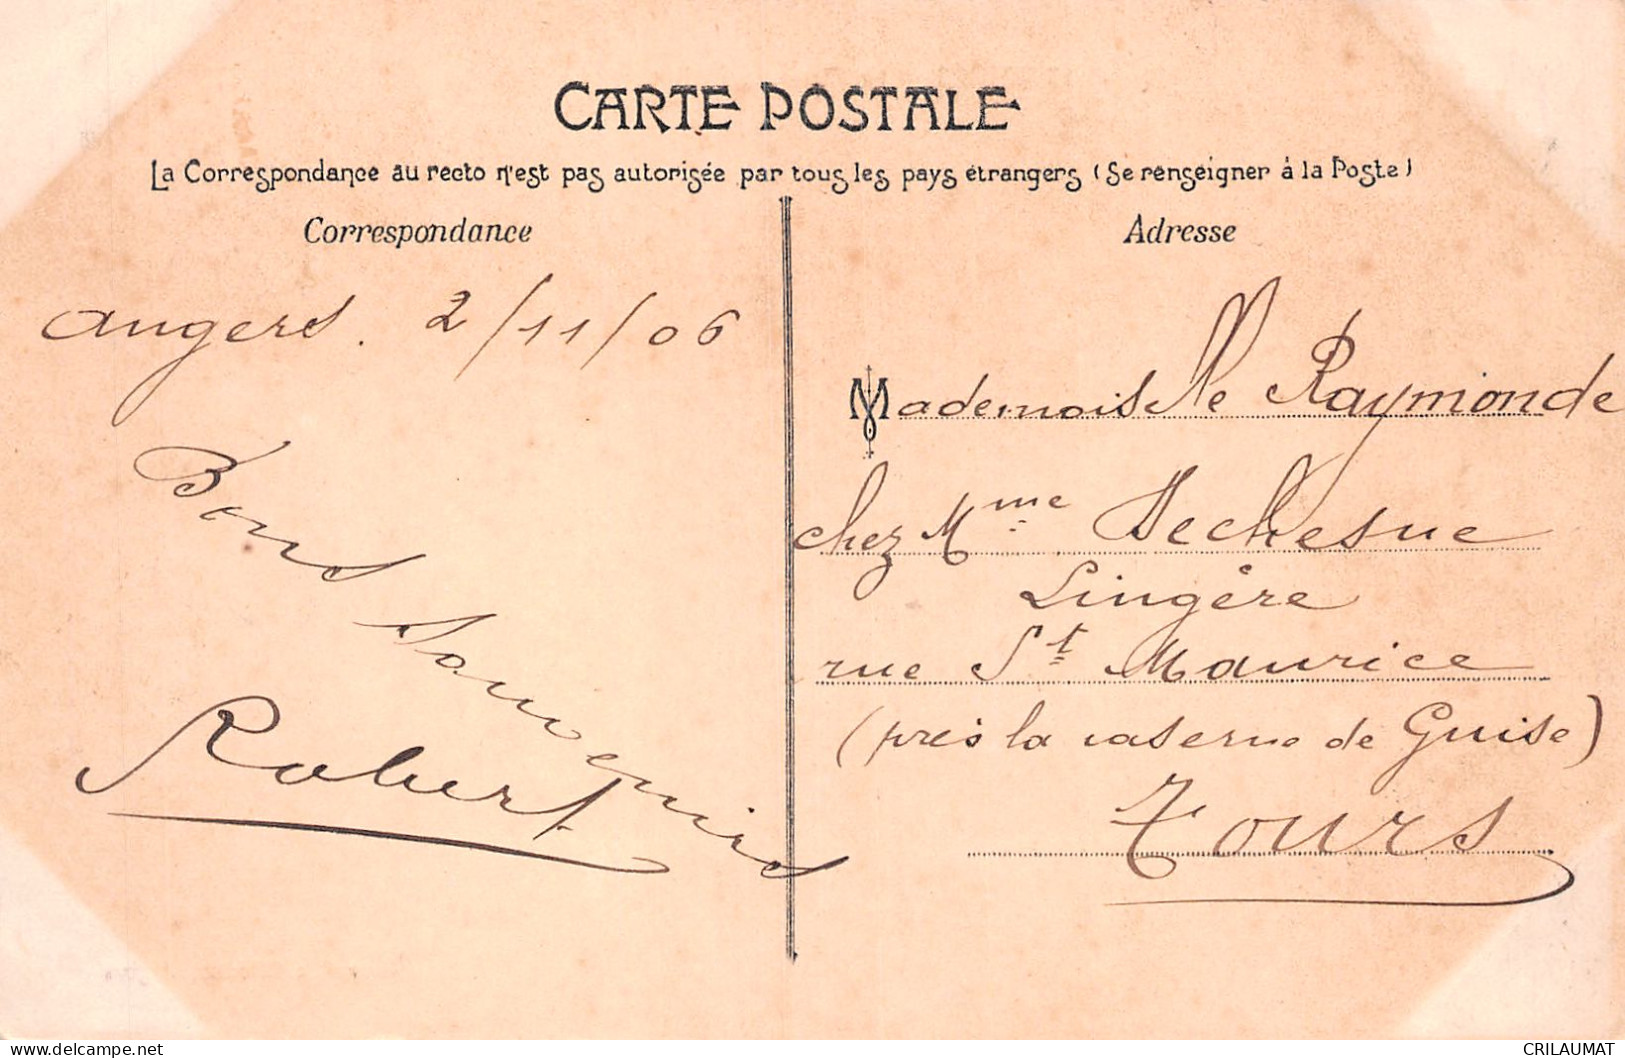 CARTE POSTALE
La Correspondance au recto n'est pas autorisée par tous les pays étrangers (Se renseigner à la Poste)
Correspondance
angers. 2/11/06
Bons souvenirs
Robert
Adresse
Mademoiselle Raymonde
chez Mme Dechesne
Lingère
rue St Maurice
(près la caserne de Guise)
Tours
CRILAUMAT